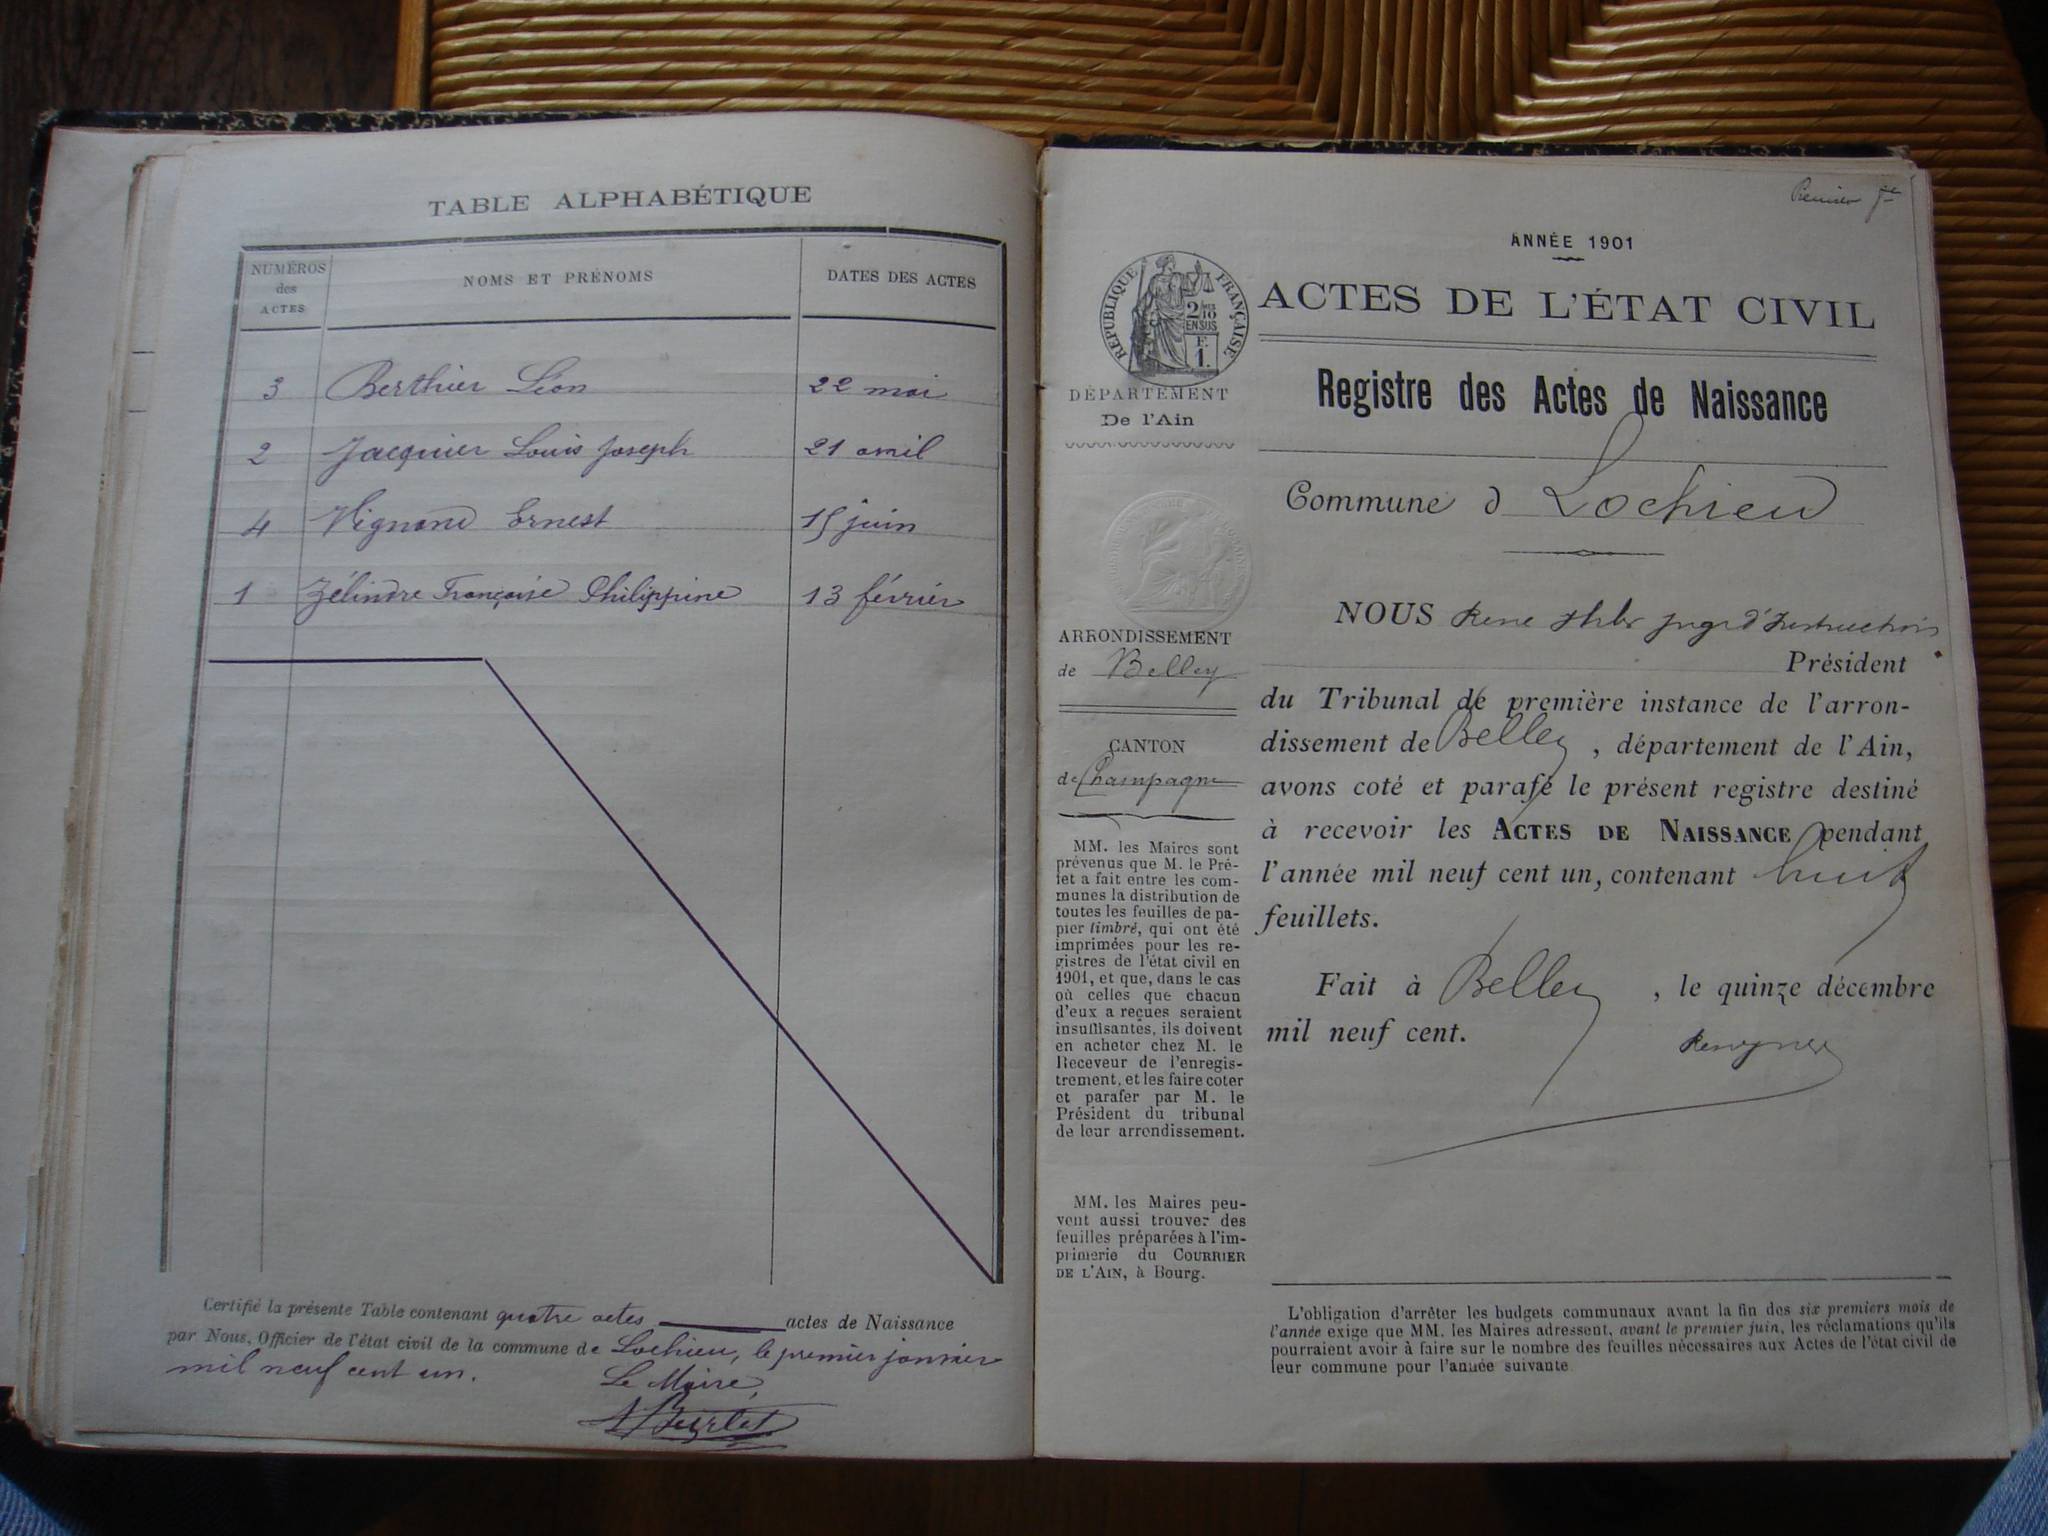 TABLE ALPHABÉTIQUE
NUMÉROS des ACTES
NOMS ET PRÉNOMS
DATES DES ACTES
3 Berthier Léon 22 mai
2 Jacquier Louis Joseph 21 avril
4 Vignand Ernest 15 juin
1 Zélindre Françoise Philippine 13 février
Certifié la présente Table contenant quatre actes actes de Naissance
par Nous, Officier de l'état civil de la commune de Lochieu, le premier janvier
mil neuf cent un.
Le Maire,
Premier
ANNÉE 1901
ACTES DE L'ÉTAT CIVIL
RÉPUBLIQUE FRANÇAISE
2/10 EN SUS
F. 1.
DÉPARTEMENT
De l'Ain
Registre des Actes de Naissance
Commune d Lochieu
ARRONDISSEMENT
de Belley
CANTON
de Champagne
MM. les Maires sont
prévenus que M. le Pré-
fet a fait entre les com-
munes la distribution de
toutes les feuilles de pa-
pier timbré, qui ont été
imprimées pour les re-
gistres de l'état civil en
1901, et que, dans le cas
où celles que chacun
d'eux a reçues seraient
insuffisantes, ils doivent
en acheter chez M. le
Receveur de l'enregis-
trement, et les faire coter
et parafer par M. le
Président du tribunal
de leur arrondissement.
MM. les Maires peu-
vent aussi trouver des
feuilles préparées à l'im-
primerie du COURRIER
DE L'AIN, à Bourg.
NOUS René juge d'Instruction
Président
du Tribunal de première instance de l'arron-
dissement de Belley, département de l'Ain,
avons coté et parafé le présent registre destiné
à recevoir les ACTES DE NAISSANCE pendant
l'année mil neuf cent un, contenant huit
feuillets.
Fait à Belley, le quinze décembre
mil neuf cent.
L'obligation d'arrêter les budgets communaux avant la fin des six premiers mois de
l'année exige que MM. les Maires adressent, avant le premier juin, les réclamations qu'ils
pourraient avoir à faire sur le nombre des feuilles nécessaires aux Actes de l'état civil de
leur commune pour l'année suivante